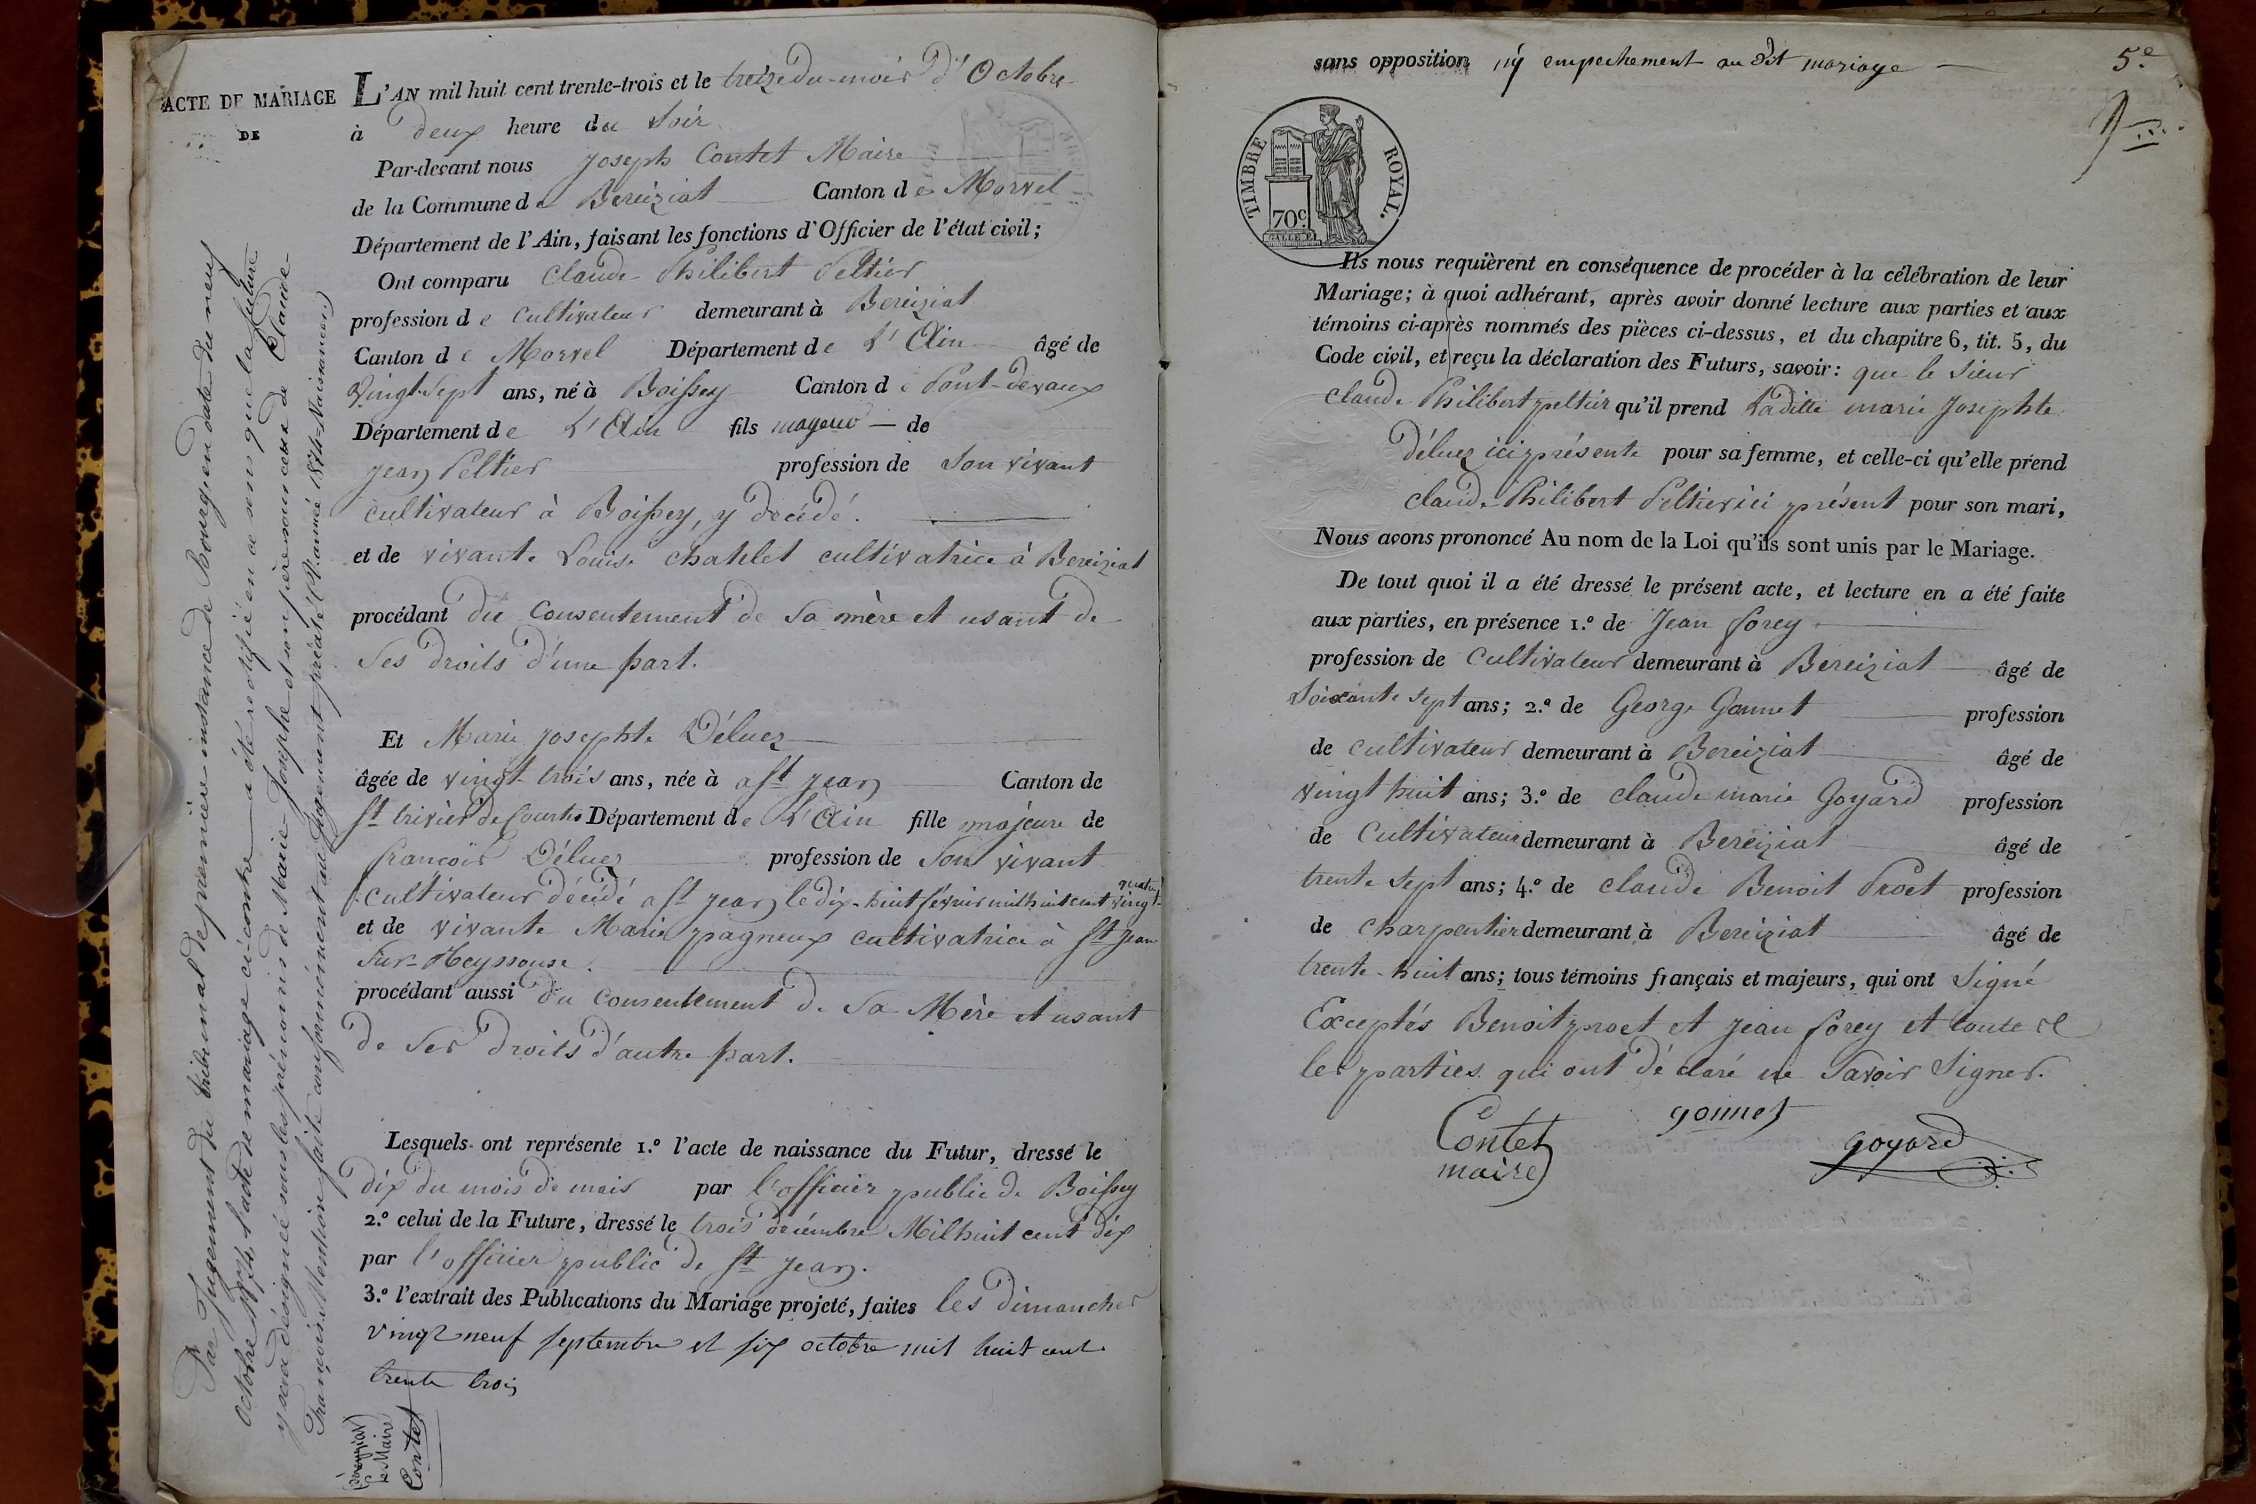 ACTE DE MARIAGE
DE
L'AN mil huit cent trente-trois et le treize du mois d'Octobre
à deux heure du Soir
Par-devant nous Joseph Contet Maire
de la Commune de Bereiziat Canton de Morvel
Département de l'Ain, faisant les fonctions d'Officier de l'état civil;
Ont comparu Claude Philibert Peltier
profession de Cultivateur demeurant à Bereiziat
Canton de Morvel Département de L'Ain âgé de
Vingt-Sept ans, né à Boissey Canton de Pont-devaux
Département de L'Ain fils mageur de
Jean Peltier profession de Son vivant
cultivateur à Boissey, y décédé.
et de vivante Louise Chatelet cultivatrice à Bereiziat
procédant du Consentement de Sa mère et usant de
Ses droits d'une part.
Et Marie Josephte Déluez
âgée de vingt-trois ans, née à a St Jean Canton de
St trivier de Courtes Département de L'Ain fille majeure de
françois Déluez profession de Son vivant
Cultivateur décédé a St Jean le dix-huit févrié mil huit cent quatre vingt
et de vivante Marie pagneux cultivatrice à St Jean
Sur-Reyssouse.
procédant aussi du Consentement de Sa Mère et usant
de Ses droits d'autre part.
Lesquels ont représente 1.º l'acte de naissance du Futur, dressé le
dix du mois de mais par l'officier public de Boissey
2.º celui de la Future, dressé le trois décembre Mil huit cent dix
par l'officier public de St Jean.
3.º l'extrait des Publications du Mariage projeté, faites les dimanches
vingt neuf septembre et six octobre mil huit cent
trente trois
Par jugement du tribunal de première instance de Bourg en date du neuf
octobre 1874, l'acte de mariage ci-contre a été rectifié en ce sens que la future
y sera désignée sous les prénoms de Marie-Josephe et son père sous ceux de Claude-
François. Mention faite conformément au Jugement précité (V. année 1874-Naissances.)
le Maire
Contet
sans opposition ny empechement au dit mariage
5e
TIMBRE ROYAL.
70c.
Ils nous requièrent en conséquence de procéder à la célébration de leur
Mariage; à quoi adhérant, après avoir donné lecture aux parties et aux
témoins ci-après nommés des pièces ci-dessus, et du chapitre 6, tit. 5, du
Code civil, et reçu la déclaration des Futurs, savoir: que le Sieur
claude Philibert peltier qu'il prend Laditte marie Josephte
Déluez ici présente pour sa femme, et celle-ci qu'elle prend
claude Philibert Peltier ici présent pour son mari,
Nous avons prononcé Au nom de la Loi qu'ils sont unis par le Mariage.
De tout quoi il a été dressé le présent acte, et lecture en a été faite
aux parties, en présence 1.º de Jean forey
profession de Cultivateur demeurant à Bereiziat âgé de
Soixante sept ans; 2.º de George Gonnet profession
de cultivateur demeurant à Bereiziat âgé de
vingt huit ans; 3.º de claude marie Goyard profession
de Cultivateur demeurant à Bereiziat âgé de
trente sept ans; 4.º de claude Benoit Proet profession
de charpentier demeurant à Bereiziat âgé de
trente-huit ans; tous témoins français et majeurs, qui ont Signé
Exceptés Benoit proet et Jean forey et toute
les parties qui ont déclaré ne Savoir Signer.
Contet
maire
gonnet
goyard